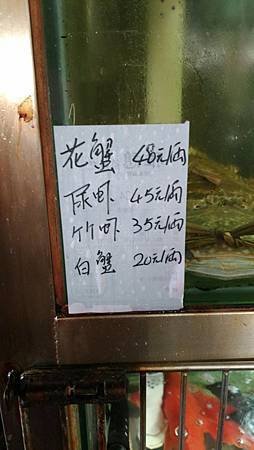 花蟹 48元/両
尿虾 45元/両
竹虾 35元/両
白蟹 20元/両